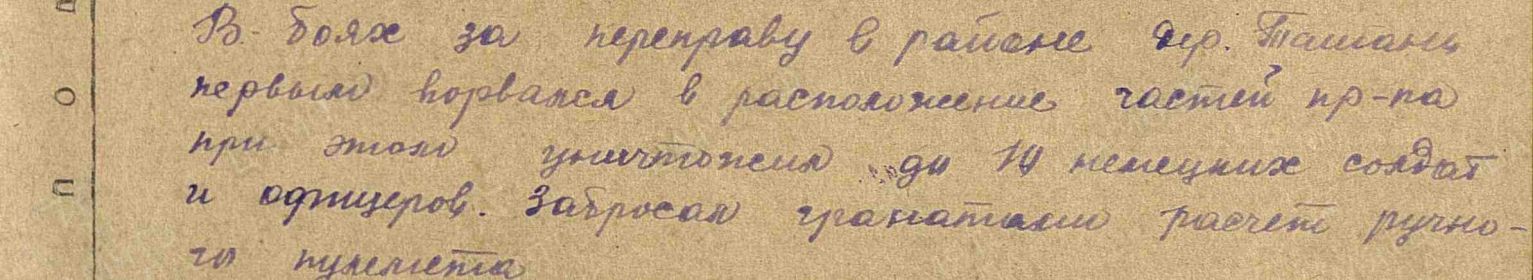 В боях за переправу в районе дер. Ташань
первым ворвался в расположение частей пр-ка
при этом уничтожил до 10 немецких солдат
и офицеров. Забросал гранатами расчет ручно-
го пулемета